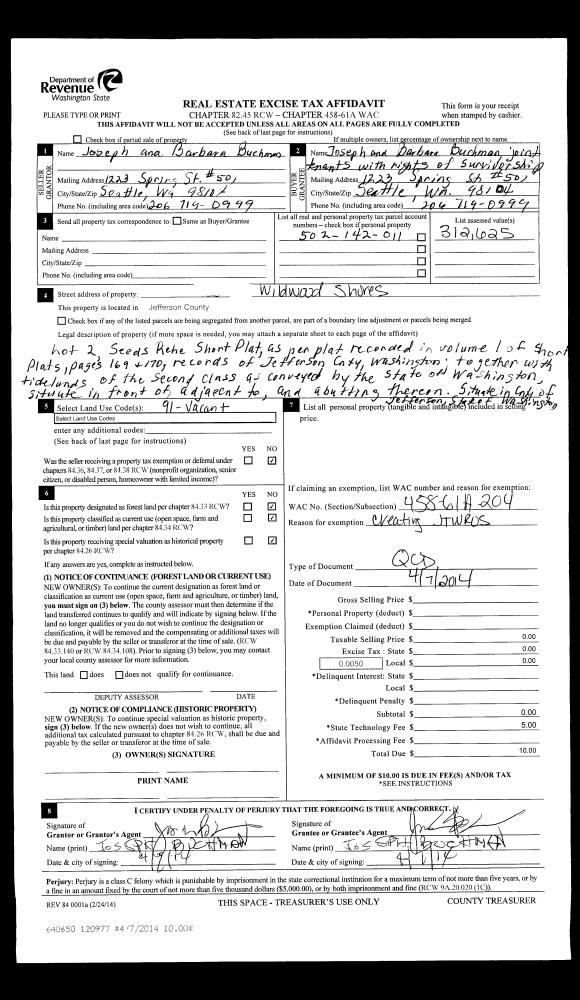 Department of
Revenue
Washington State
REAL ESTATE EXCISE TAX AFFIDAVIT
This form is your receipt
PLEASE TYPE OR PRINT
CHAPTER 82.45 RCW – CHAPTER 458-61A WAC
when stamped by cashier.
THIS AFFIDAVIT WILL NOT BE ACCEPTED UNLESS ALL AREAS ON ALL PAGES ARE FULLY COMPLETED
(See back of last page for instructions)
Check box if partial sale of property
If multiple owners, list percentage of ownership next to name.
1 Name Joseph and Barbara Buchman
SELLER GRANTOR
Mailing Address 1223 Spring St. #501
City/State/Zip Seattle, Wa 98104
Phone No. (including area code) 206 719-0999
2 Name Joseph and Barbara Buchman joint
tenants with rights of survivorship
BUYER GRANTEE
Mailing Address 1223 Spring St #501
City/State/Zip Seattle Wa. 98104
Phone No. (including area code) 206 719-0999
3 Send all property tax correspondence to: Same as Buyer/Grantee
Name
Mailing Address
City/State/Zip
Phone No. (including area code)
List all real and personal property tax parcel account
numbers – check box if personal property
502-142-011
List assessed value(s)
312,625
4 Street address of property: Wildwood Shores
This property is located in Jefferson County
Check box if any of the listed parcels are being segregated from another parcel, are part of a boundary line adjustment or parcels being merged.
Legal description of property (if more space is needed, you may attach a separate sheet to each page of the affidavit)
Lot 2, Seeds Rehe Short Plat, as per plat recorded in volume 1 of Short
Plats, pages 169 + 170, records of Jefferson Cnty, Washington. together with
tidelands of the second class as conveyed by the state of Washington,
situate in front of, adjacent to, and abutting thereon. Situate in Cnty of
Jefferson, State of Washington
5 Select Land Use Code(s): 91 - Vacant
Select Land Use Codes
enter any additional codes:
(See back of last page for instructions)
YES NO
Was the seller receiving a property tax exemption or deferral under
chapters 84.36, 84.37, or 84.38 RCW (nonprofit organization, senior
citizen, or disabled person, homeowner with limited income)?
6 YES NO
Is this property designated as forest land per chapter 84.33 RCW?
Is this property classified as current use (open space, farm and
agricultural, or timber) land per chapter 84.34 RCW?
Is this property receiving special valuation as historical property
per chapter 84.26 RCW?
If any answers are yes, complete as instructed below.
(1) NOTICE OF CONTINUANCE (FOREST LAND OR CURRENT USE)
NEW OWNER(S): To continue the current designation as forest land or
classification as current use (open space, farm and agriculture, or timber) land,
you must sign on (3) below. The county assessor must then determine if the
land transferred continues to qualify and will indicate by signing below. If the
land no longer qualifies or you do not wish to continue the designation or
classification, it will be removed and the compensating or additional taxes will
be due and payable by the seller or transferor at the time of sale. (RCW
84.33.140 or RCW 84.34.108). Prior to signing (3) below, you may contact
your local county assessor for more information.
This land does does not qualify for continuance.
DEPUTY ASSESSOR DATE
(2) NOTICE OF COMPLIANCE (HISTORIC PROPERTY)
NEW OWNER(S): To continue special valuation as historic property,
sign (3) below. If the new owner(s) does not wish to continue, all
additional tax calculated pursuant to chapter 84.26 RCW, shall be due and
payable by the seller or transferor at the time of sale.
(3) OWNER(S) SIGNATURE
PRINT NAME
7 List all personal property (tangible and intangible) included in selling
price.
If claiming an exemption, list WAC number and reason for exemption:
WAC No. (Section/Subsection) 458-61A 204
Reason for exemption Creating JTWROS
Type of Document QCD
Date of Document 4/7/2014
Gross Selling Price $
*Personal Property (deduct) $
Exemption Claimed (deduct) $
Taxable Selling Price $ 0.00
Excise Tax : State $ 0.00
0.0050 Local $ 0.00
*Delinquent Interest: State $
Local $
*Delinquent Penalty $
Subtotal $ 0.00
*State Technology Fee $ 5.00
*Affidavit Processing Fee $
Total Due $ 10.00
A MINIMUM OF $10.00 IS DUE IN FEE(S) AND/OR TAX
*SEE INSTRUCTIONS
8 I CERTIFY UNDER PENALTY OF PERJURY THAT THE FOREGOING IS TRUE AND CORRECT.
Signature of
Grantor or Grantor's Agent
Name (print) JOSEPH BUCHMAN
Date & city of signing:
Signature of
Grantee or Grantee's Agent
Name (print) JOSEPH BUCHMAN
Date & city of signing:
Perjury: Perjury is a class C felony which is punishable by imprisonment in the state correctional institution for a maximum term of not more than five years, or by
a fine in an amount fixed by the court of not more than five thousand dollars ($5,000.00), or by both imprisonment and fine (RCW 9A.20.020 (1C)).
REV 84 0001a (2/24/14)
THIS SPACE - TREASURER'S USE ONLY
COUNTY TREASURER
640650 120977 *4/7/2014 10.00*